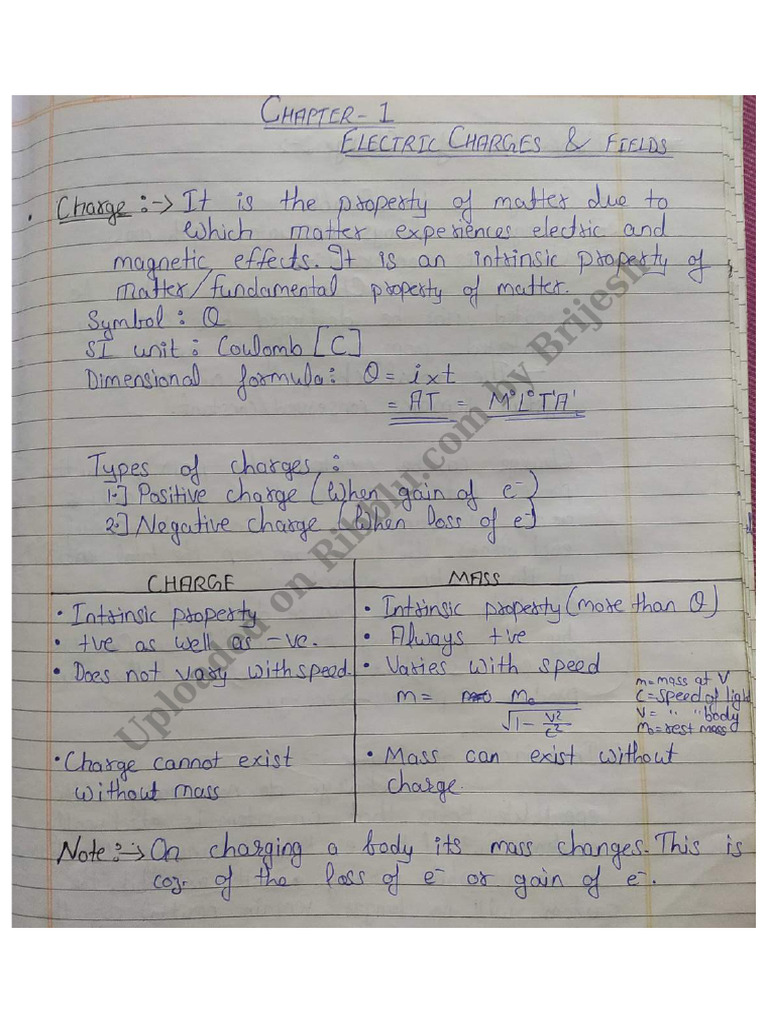 CHAPTER-1
ELECTRIC CHARGES & FIELDS
• Charge :-> It is the property of matter due to
which matter experiences electric and
magnetic effects. It is an intrinsic property of
matter/fundamental property of matter.
Symbol : Q
SI unit : Coulomb [C]
Dimensional formula: Q = i×t
= AT = M⁰L⁰T¹A¹
Types of charges :
1.] Positive charge (When gain of e⁻)
2.] Negative charge (When loss of e⁻)
CHARGE
• Intrinsic property
• +ve as well as -ve.
• Does not vary with speed.
• Charge cannot exist
without mass
MASS
• Intrinsic property (more than Q)
• Always +ve
• Varies with speed
m = M₀ / √(1 - V²/c²)
m = mass at V
C = speed of light
V = " " body
M₀ = rest mass
• Mass can exist without
charge.
Note :-> On charging a body its mass changes. This is
coz. of the loss of e⁻ or gain of e⁻.
Uploaded on Ribblu.com by Brijesh